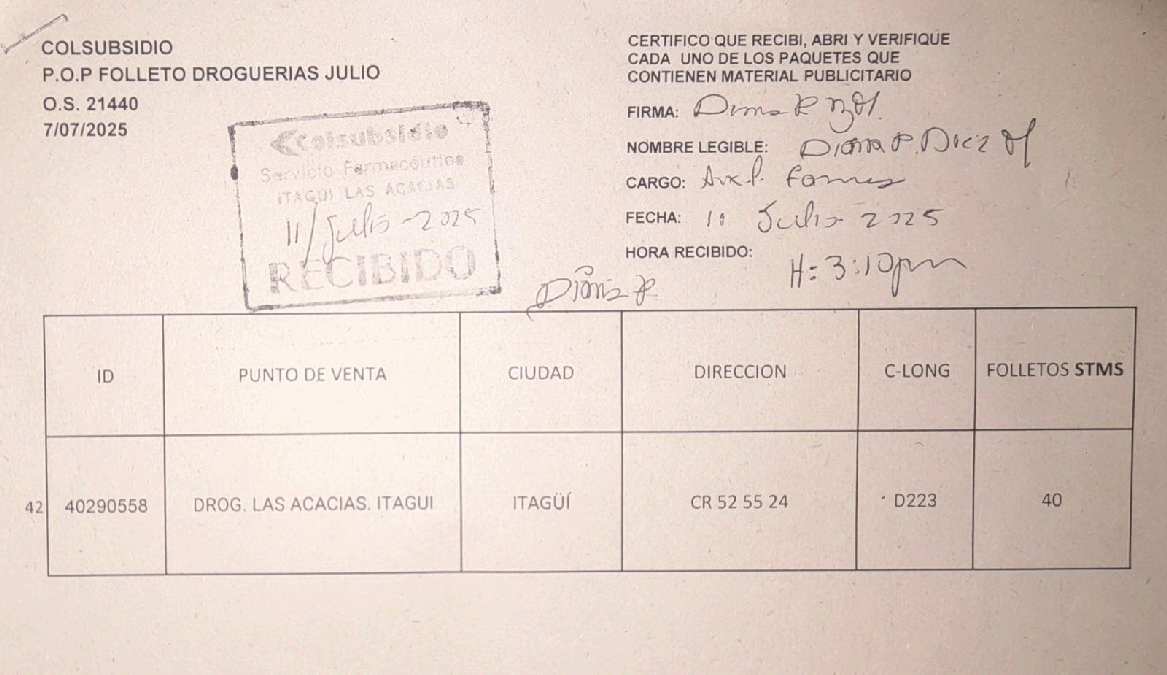 COLSUBSIDIO
P.O.P FOLLETO DROGUERIAS JULIO
O.S. 21440
7/07/2025
CERTIFICO QUE RECIBI, ABRI Y VERIFIQUE
CADA UNO DE LOS PAQUETES QUE
CONTIENEN MATERIAL PUBLICITARIO
FIRMA: Diana P
NOMBRE LEGIBLE: Diana P. Diez M
CARGO: Aux.
FECHA: 11 Julio 2025
HORA RECIBIDO: H: 3:10pm
Colsubsidio
Servicio Farmacéutico
ITAGUI LAS ACACIAS
11/Julio-2025
RECIBIDO
Diana P
ID PUNTO DE VENTA CIUDAD DIRECCION C-LONG FOLLETOS STMS
42 40290558 DROG. LAS ACACIAS. ITAGUI ITAGÜÍ CR 52 55 24 D223 40